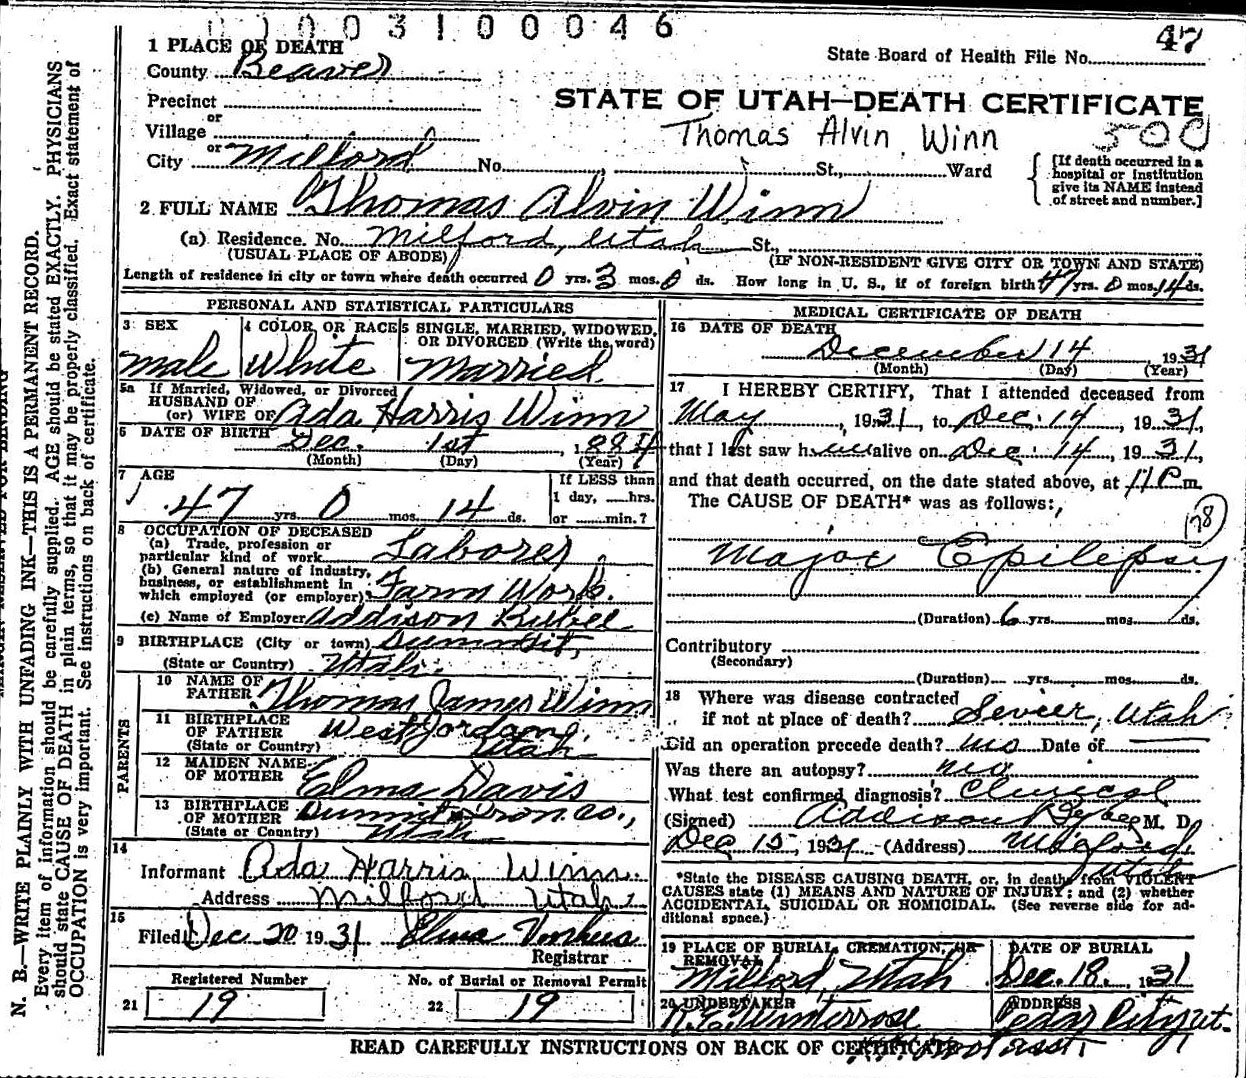 0 1 0 0 3 1 0 0 0 4 6
47
State Board of Health File No.
1 PLACE OF DEATH
County Beaver
STATE OF UTAH—DEATH CERTIFICATE
Precinct
or
Village
Thomas Alvin Winn
500
or
City Milford No. St., Ward
[If death occurred in a hospital or institution give its NAME instead of street and number.]
2 FULL NAME Thomas Alvin Winn
(a) Residence. No. Milford, Utah St.,
(USUAL PLACE OF ABODE) (IF NON-RESIDENT GIVE CITY OR TOWN AND STATE)
Length of residence in city or town where death occurred 0 yrs. 3 mos. 0 ds. How long in U. S., if of foreign birth 47 yrs. 0 mos. 14 ds.
PERSONAL AND STATISTICAL PARTICULARS
3 SEX
male
4 COLOR OR RACE
White
5 SINGLE, MARRIED, WIDOWED, OR DIVORCED (Write the word)
Married
5a If Married, Widowed, or Divorced
HUSBAND OF
(or) WIFE OF Ada Harris Winn
6 DATE OF BIRTH Dec. 1st, 1884
(Month) (Day) (Year)
7 AGE
47 yrs. 0 mos. 14 ds.
If LESS than
1 day, hrs.
or min.?
8 OCCUPATION OF DECEASED
(a) Trade, profession or
particular kind of work Laborer
(b) General nature of industry,
business, or establishment in
which employed (or employer) Farm Work.
(c) Name of Employer Addison
9 BIRTHPLACE (City or town) Summit,
(State or Country) Utah.
PARENTS
10 NAME OF
FATHER Thomas James Winn
11 BIRTHPLACE
OF FATHER West Jordan,
(State or Country) Utah
12 MAIDEN NAME
OF MOTHER Elma Davis
13 BIRTHPLACE
OF MOTHER Summit Iron Co.,
(State or Country) Utah
14
Informant Ada Harris Winn
Address Milford Utah
15
Filed Dec 20 1931 Elma
Registrar
Registered Number
21 19
No. of Burial or Removal Permit
22 19
MEDICAL CERTIFICATE OF DEATH
16 DATE OF DEATH
December 14, 1931
(Month) (Day) (Year)
17 I HEREBY CERTIFY, That I attended deceased from
May, 1931, to Dec. 14, 1931,
that I last saw him alive on Dec. 14, 1931,
and that death occurred, on the date stated above, at 11 P m.
The CAUSE OF DEATH* was as follows:
78
Major Epilepsy
(Duration) 6 yrs. mos. ds.
Contributory
(Secondary)
(Duration) yrs. mos. ds.
18 Where was disease contracted
if not at place of death? Sevier, Utah
Did an operation precede death? no Date of
Was there an autopsy? no
What test confirmed diagnosis? Clinical
(Signed) Addison M. D.
Dec 15, 1931 (Address) Milford,
Utah
*State the DISEASE CAUSING DEATH, or, in death from VIOLENT
CAUSES state (1) MEANS AND NATURE OF INJURY; and (2) whether
ACCIDENTAL, SUICIDAL OR HOMICIDAL. (See reverse side for additional space.)
19 PLACE OF BURIAL, CREMATION, OR
REMOVAL
Milford, Utah
DATE OF BURIAL
Dec. 18. 1931
20 UNDERTAKER
Winterrose
ADDRESS
Cedar City, Ut.
READ CAREFULLY INSTRUCTIONS ON BACK OF CERTIFICATE
N. B.—WRITE PLAINLY WITH UNFADING INK—THIS IS A PERMANENT RECORD.
Every item of information should be carefully supplied. AGE should be stated EXACTLY. PHYSICIANS
should state CAUSE OF DEATH in plain terms, so that it may be properly classified. Exact statement of
OCCUPATION is very important. See instructions on back of certificate.